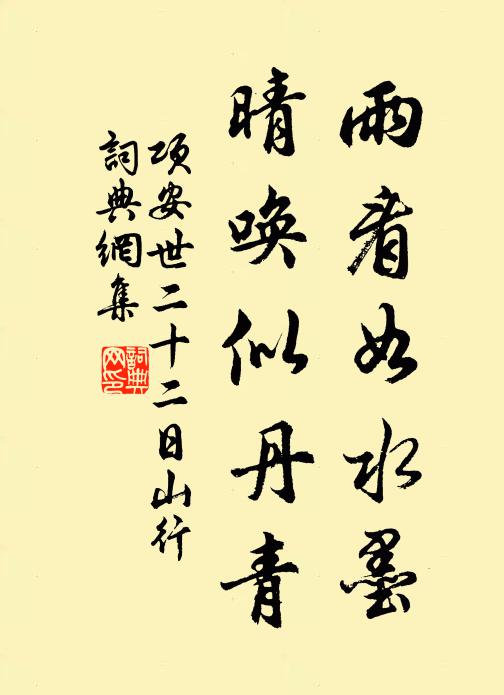 雨看如水墨
晴唤似丹青
項安世二十二日山行
詞典網集
詞典网印